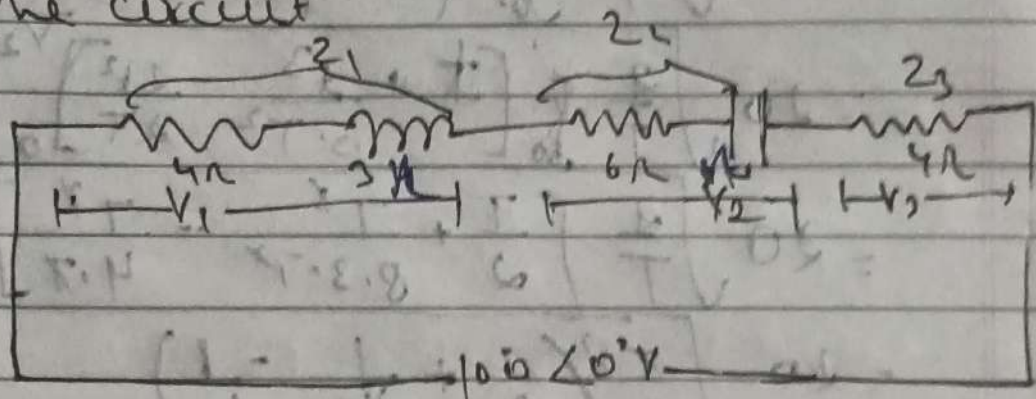 he circuit
Z1 Z2 Z3
4Ω 3Ω 6Ω 4Ω
V1 V2 V3
100 ∠0° V